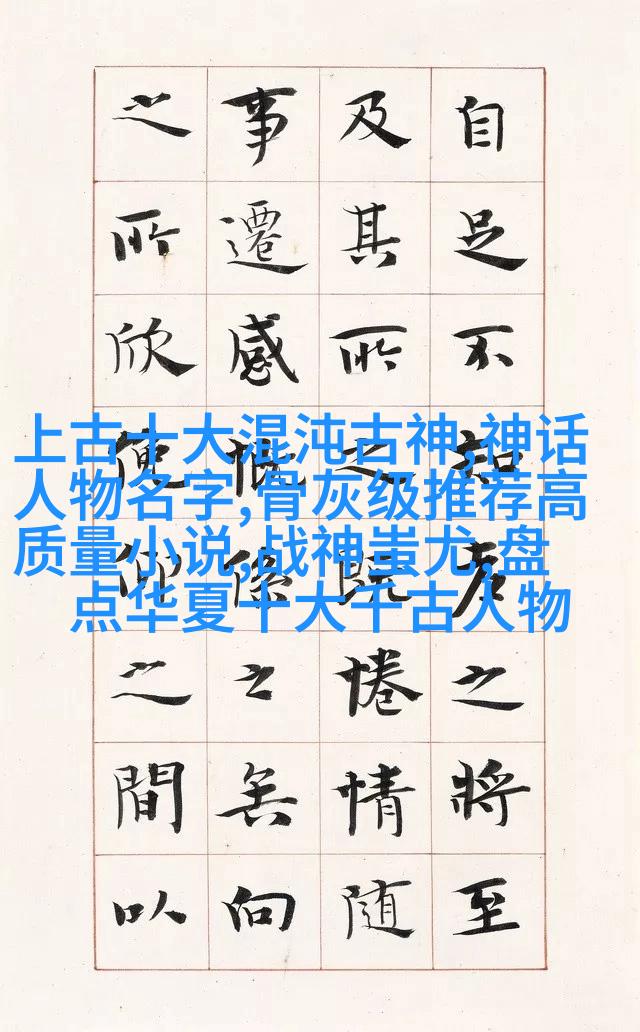 自足不知老之將至
及其所之既惓情隨
事遷感慨係之矣向
之所欣俛仰之間以
上古十大混沌古神,神话
人物名字,骨灰级推荐高
质量小说,战神蚩尤,盘
点华夏十大千古人物